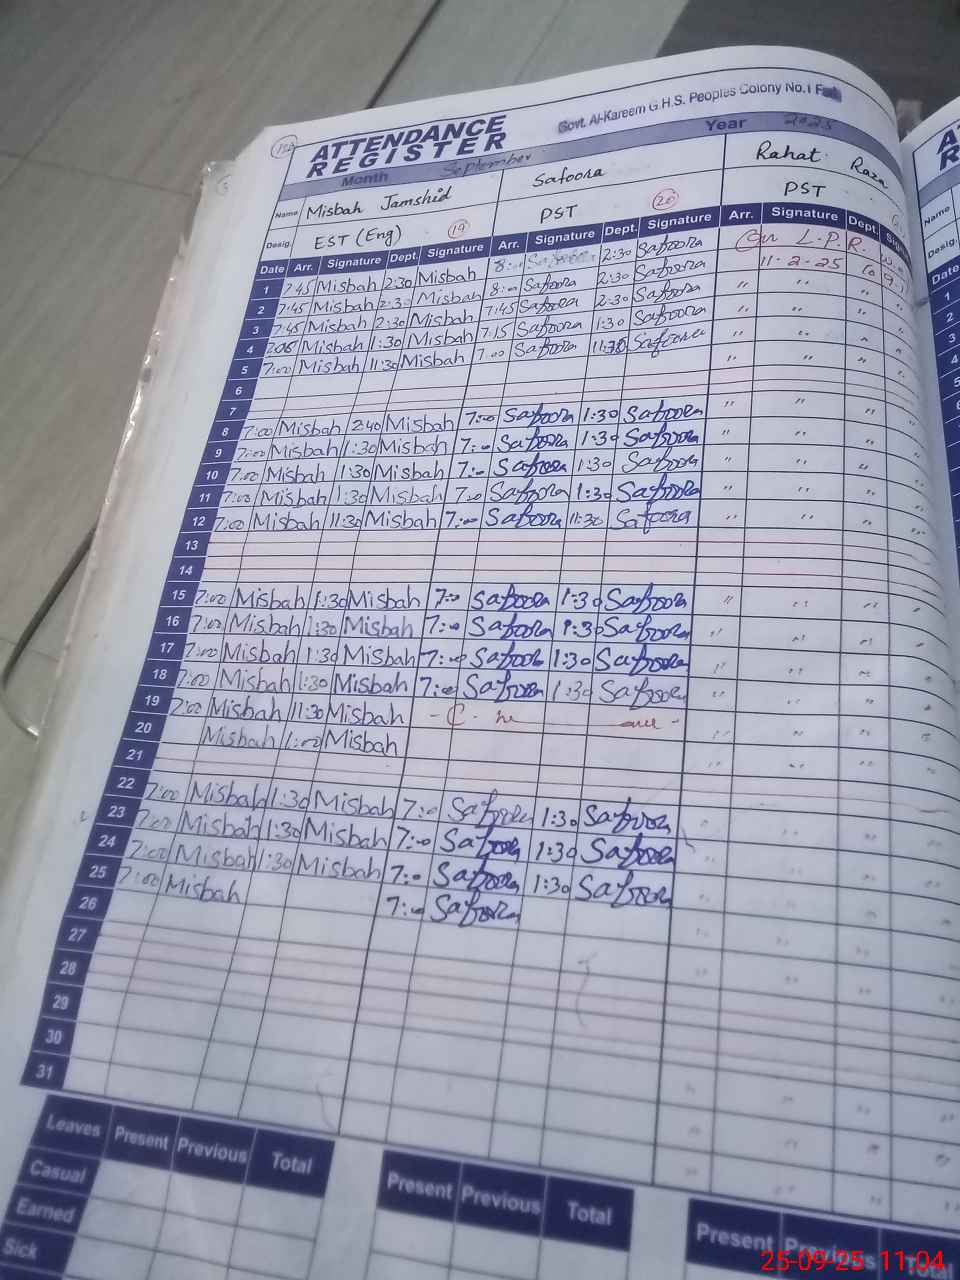 152
ATTENDANCE
REGISTER
Govt. Al-Kareem G.H.S. Peoples Colony No.1
Month September Year 2025
Name Misbah Jamshid Safoora Rahat Raza
Desig. EST (Eng) 19 PST 20 PST
Date Arr. Signature Dept. Signature Arr. Signature Dept. Signature Arr. Signature Dept.
1 7:45 Misbah 2:30 Misbah 8:00 Safoora 2:30 Safoora On L.P.R.
2 7:45 Misbah 2:30 Misbah 8:00 Safoora 2:30 Safoora 11-2-25 to
3 7:45 Misbah 2:30 Misbah 7:45 Safoora 2:30 Safoora " " "
4 Misbah 1:30 Misbah 7:15 Safoora 1:30 Safoora " " "
5 7:00 Misbah 11:30 Misbah 7:00 Safoora 11:30 Safoora " " "
6
7
8 7:00 Misbah 2:40 Misbah 7:00 Safoora 1:30 Safoora " " "
9 7:00 Misbah 1:30 Misbah 7:00 Safoora 1:30 Safoora " " "
10 7:00 Misbah 1:30 Misbah 7:00 Safoora 1:30 Safoora " " "
11 7:00 Misbah 1:30 Misbah 7:00 Safoora 1:30 Safoora " " "
12 7:00 Misbah 11:30 Misbah 7:00 Safoora 11:30 Safoora " " "
13
14
15 7:00 Misbah 1:30 Misbah 7:00 Safoora 1:30 Safoora " " "
16 7:00 Misbah 1:30 Misbah 7:00 Safoora 1:30 Safoora " " "
17 7:00 Misbah 1:30 Misbah 7:00 Safoora 1:30 Safoora " " "
18 7:00 Misbah 1:30 Misbah 7:00 Safoora 1:30 Safoora " " "
19 7:00 Misbah 11:30 Misbah " " "
20 Misbah 1:00 Misbah " " "
21
22 7:00 Misbah 1:30 Misbah 7:00 Safoora 1:30 Safoora " " "
23 7:00 Misbah 1:30 Misbah 7:00 Safoora 1:30 Safoora " " "
24 7:00 Misbah 1:30 Misbah 7:00 Safoora 1:30 Safoora " " "
25 7:00 Misbah 7:00 Safoora " " "
26
27
28
29
30
31
Leaves Present Previous Total Present Previous Total Present Previous Total
Casual
Earned
Sick
Name
Desig.
Date
1
2
3
4
5
25-09-25 11:04